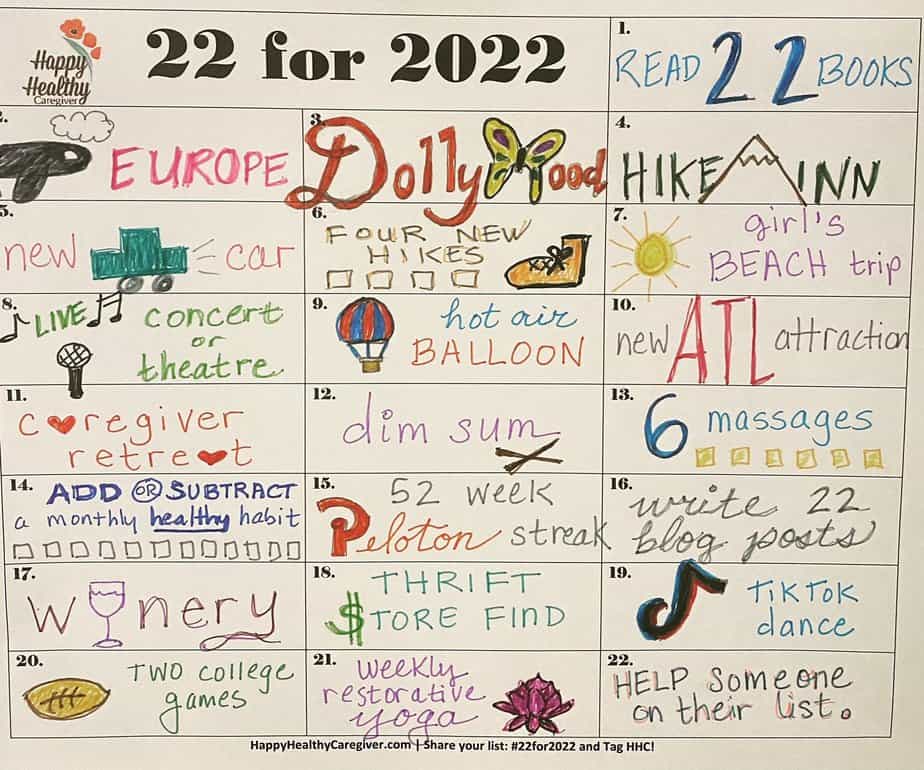 Happy
Healthy
Caregiver
22 for 2022
1.
READ 22 BOOKS
2.
EUROPE
3.
DollyWood
4.
HIKE INN
5.
new car
6.
FOUR NEW
HIKES
7.
girl's
BEACH trip
8.
LIVE concert
or
theatre
9.
hot air
BALLOON
10.
new ATL attraction
11.
caregiver
retreat
12.
dim sum
13.
6 massages
14.
ADD OR SUBTRACT
a monthly healthy habit
15.
52 week
Peloton streak
16.
write 22
blog posts
17.
winery
18.
THRIFT
$TORE FIND
19.
TIKTOK
dance
20.
TWO college
games
21.
weekly
restorative
yoga
22.
HELP someone
on their list.
HappyHealthyCaregiver.com | Share your list: #22for2022 and Tag HHC!